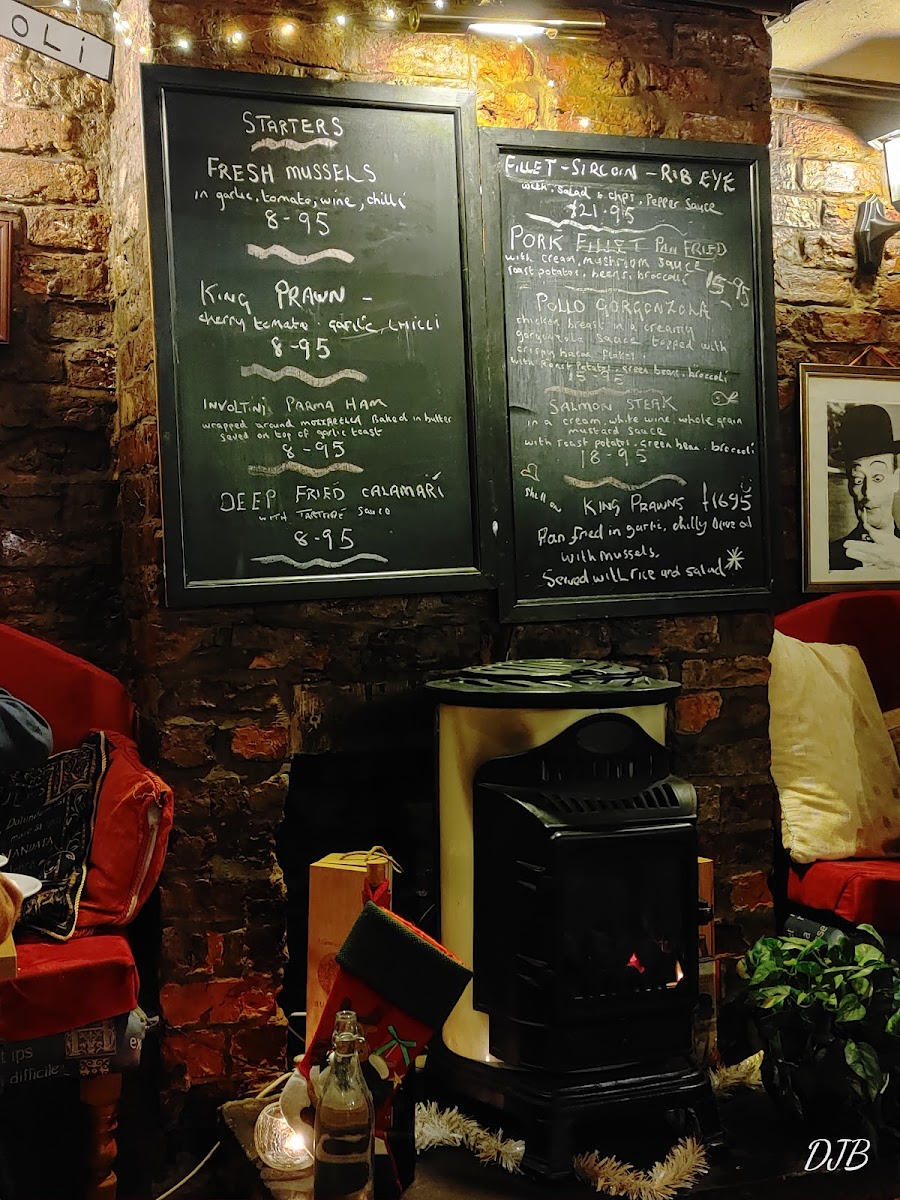 OLi
STARTERS
FRESH MUSSELS
in garlic, tomato, wine, chilli
8-95
KING PRAWN -
cherry tomato. garlic, CHILLI
8-95
INVOLTINI PARMA HAM
wrapped around mozzarella Baked in butter
served on top of garlic toast
8-95
DEEP FRIED CALAMARI
WITH TARTARE SAUCE
8-95
FILLET - SIRLOIN - RIB EYE
with. salad & chps. Pepper Sauce
£21.95
PORK FILLET PAN FRIED
with cream, mushroom sauce
roast potatos. beens. broccoli
15-95
POLLO GORGONZOLA
chicken breast in a creamy
gorgonzola sauce topped with
crispy bacon flakes
with Roast Potatos. green beans. broccoli
15-95
SALMON STEAK
in a cream, white wine, whole grain
mustard sauce
with roast potatos. green bean. broccoli
18-95
shell on KING PRAWNS £1695
Pan fried in garlic, chilly Olive oil
with mussels.
Served with rice and salad
tips
difficile
DJB